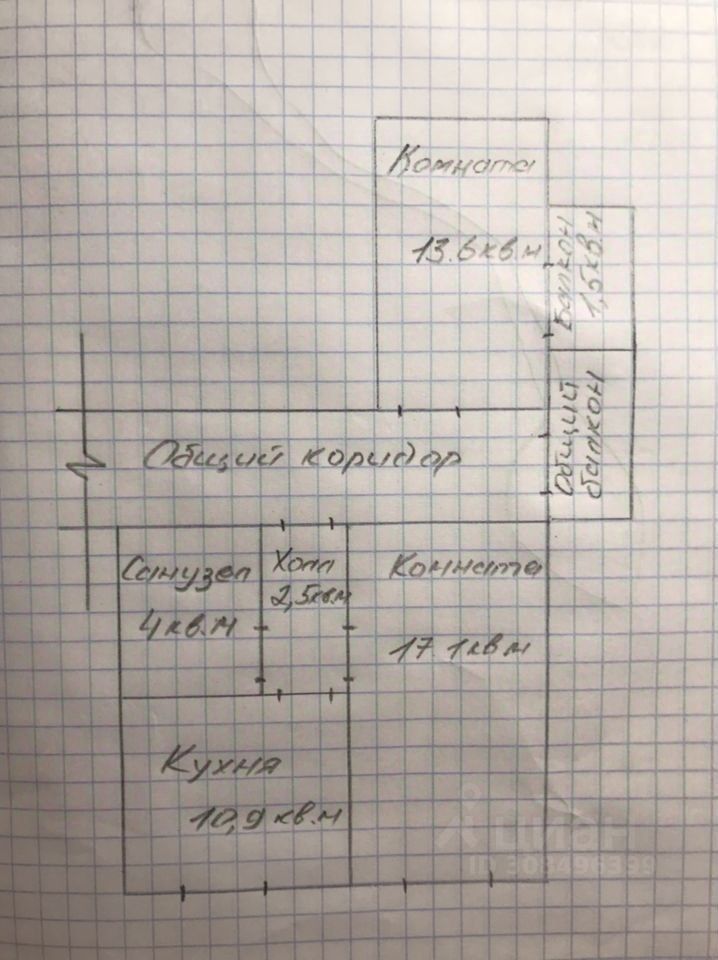 Комната
13.6кв.м
Балкон
1,5кв.м
Общий
балкон
Общий коридор
Санузел
4кв.м
Холл
2,5кв.м
Комната
17.1кв.м
Кухня
10,9кв.м
циан
ID 303496339